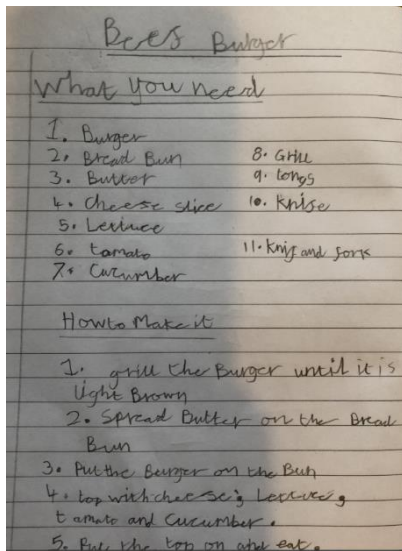 Bees Burger
What you need
1. Burger
2. Bread Bun
3. Butter
4. Cheese slice
5. Lettuce
6. tomato
7. Cucumber
8. Grill
9. tongs
10. Knife
11. Knif and fork
How to Make it
1. grill the Burger until it is
light Brown
2. Spread Butter on the Bread
Bun
3. Put the Burger on the Bun
4. top with cheese, Lettuce,
tamato and Cucumber.
5. Put the top on and eat.